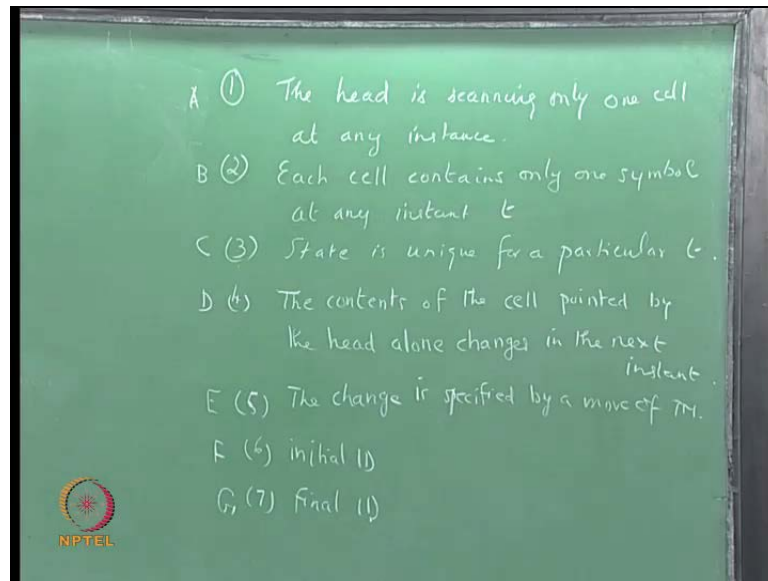 A ① The head is scanning only one cell
at any instance.
B ② Each cell contains only one symbol
at any instant t
C (3) State is unique for a particular t.
D (4) The contents of the cell pointed by
the head alone changes in the next
instant.
E (5) The change is specified by a move of TM.
F (6) initial ID
G, (7) Final ID
NPTEL